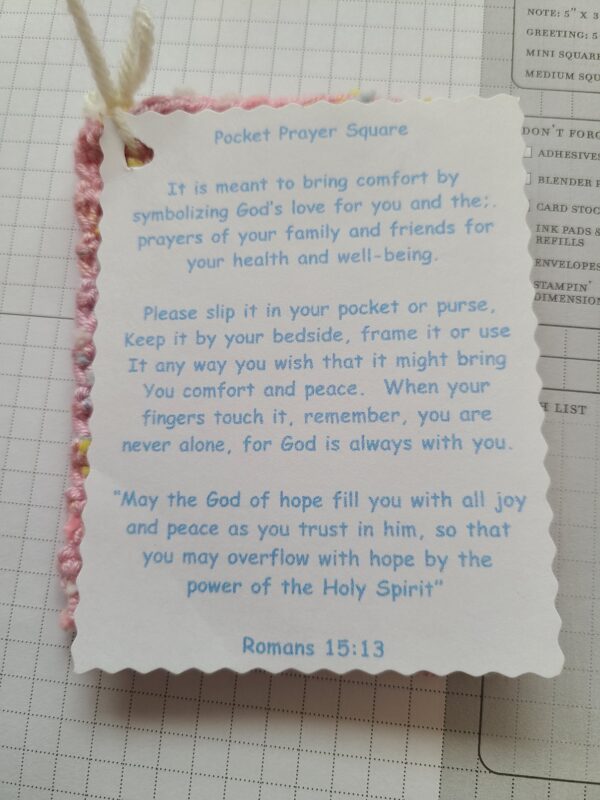 Pocket Prayer Square
It is meant to bring comfort by
symbolizing God's love for you and the;.
prayers of your family and friends for
your health and well-being.
Please slip it in your pocket or purse,
Keep it by your bedside, frame it or use
It any way you wish that it might bring
You comfort and peace. When your
fingers touch it, remember, you are
never alone, for God is always with you.
"May the God of hope fill you with all joy
and peace as you trust in him, so that
you may overflow with hope by the
power of the Holy Spirit"
Romans 15:13
NOTE: 5" X 3
GREETING: 5
MINI SQUAR
MEDIUM SQU
DON'T FORG
ADHESIVES
BLENDER P
CARD STOC
INK PADS &
REFILLS
ENVELOPES
STAMPIN'
DIMENSION
H LIST